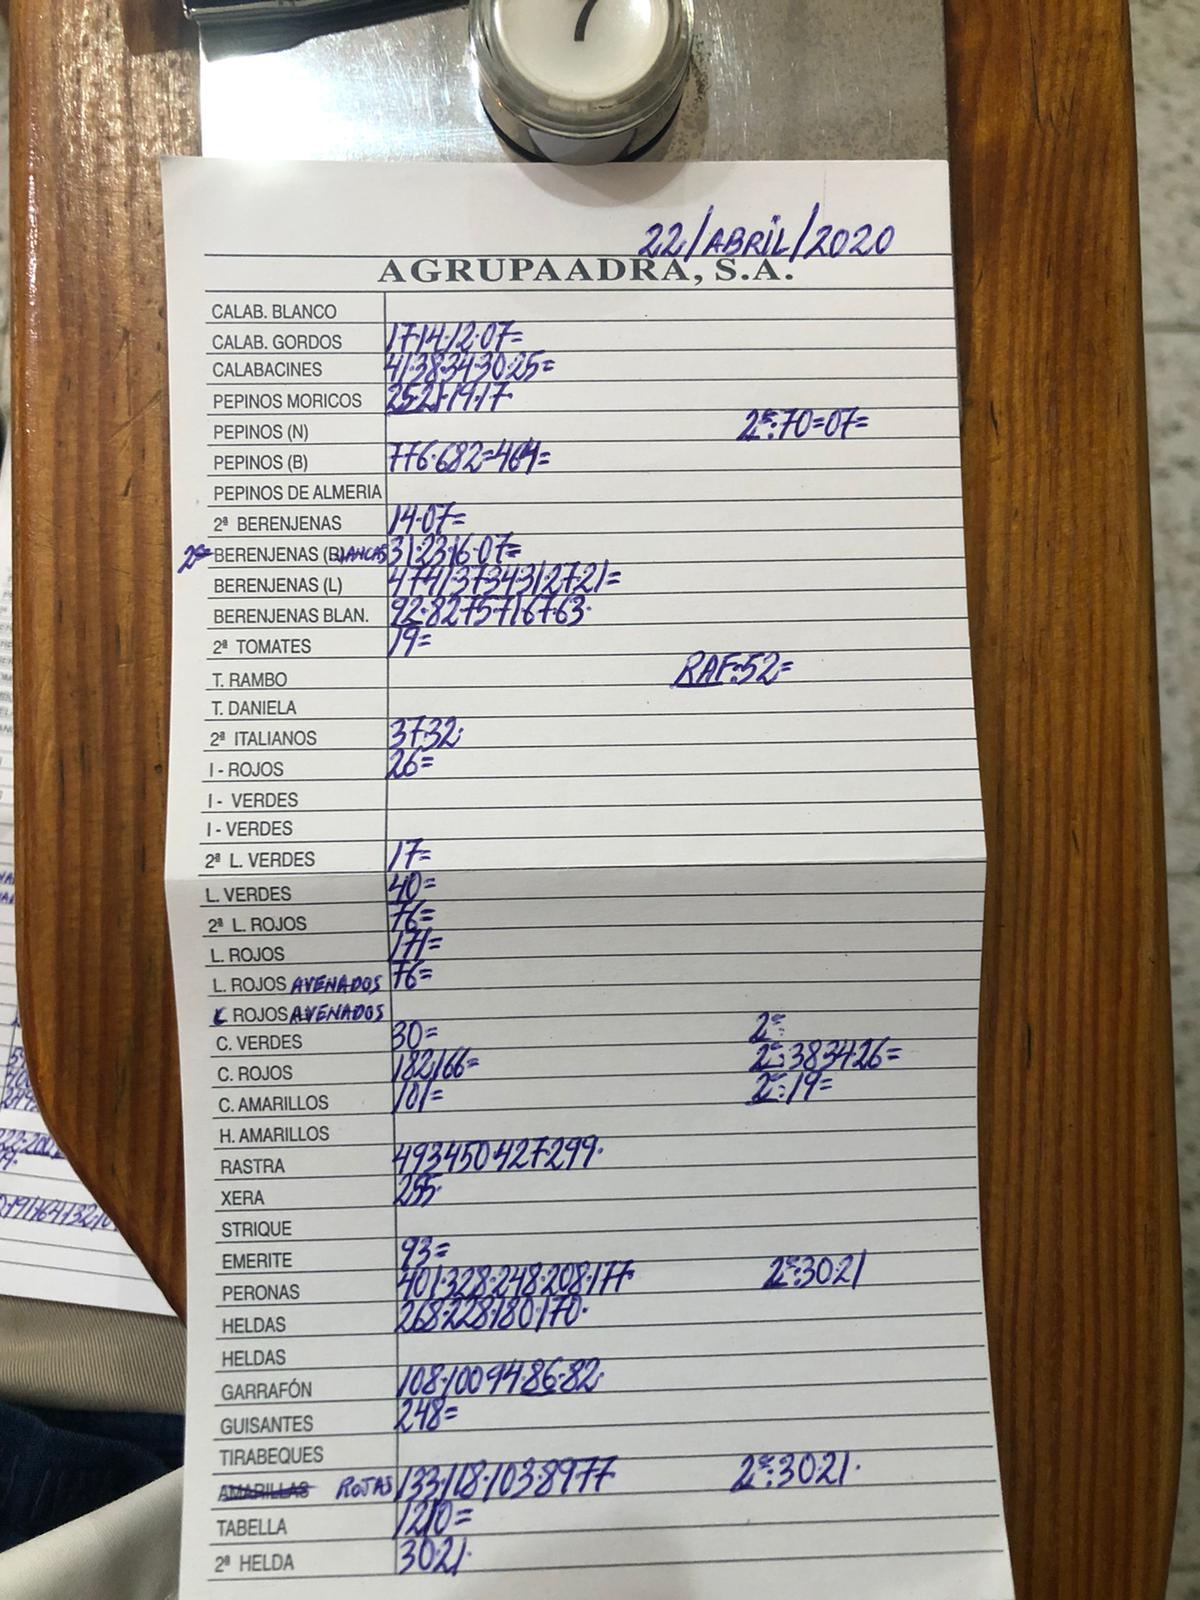 22/ABRIL/2020
AGRUPAADRA, S.A.
CALAB. BLANCO
CALAB. GORDOS 17·14·12·07=
CALABACINES 41·38·34·30·25=
PEPINOS MORICOS 25·21·19·17·
PEPINOS (N) 2ªs:70=07=
PEPINOS (B) 776·682=464=
PEPINOS DE ALMERIA
2ª BERENJENAS 14·07=
2ªs BERENJENAS (BLANCAS 31·23·16·07=
BERENJENAS (L) 47·41·37·34·31·27·21=
BERENJENAS BLAN. 92·82·75·71·67·63·
2ª TOMATES 19=
T. RAMBO RAF:52=
T. DANIELA
2ª ITALIANOS 37·32·
I - ROJOS 26=
I - VERDES
I - VERDES
2ª L. VERDES 17=
L. VERDES 40=
2ª L. ROJOS 76=
L. ROJOS 171=
L. ROJOS AVENADOS 76=
C ROJOS AVENADOS
C. VERDES 30= 2ªs:
C. ROJOS 182·166= 2ªs:38·34·26=
C. AMARILLOS 101= 2ªs:19=
H. AMARILLOS
RASTRA 493·450·427·299·
XERA 255·
STRIQUE
EMERITE 93=
PERONAS 401·328·248·208·177· 2ªs:30·21
HELDAS 268·228·180·170·
HELDAS
GARRAFÓN 108·100·94·86·82·
GUISANTES 248=
TIRABEQUES
AMARILLAS ROJAS 133·118·103·89·77 2ªs:30·21·
TABELLA 1210=
2ª HELDA 30·21·